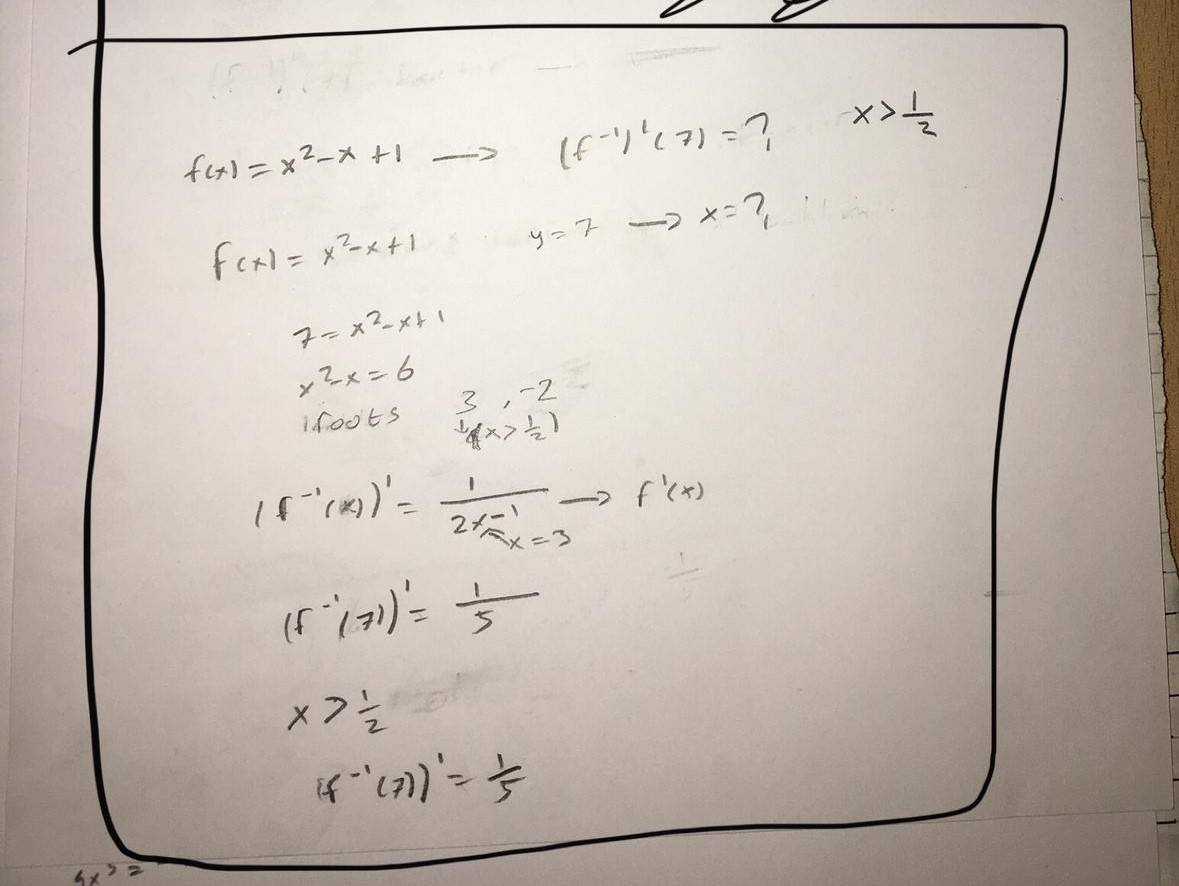 f(x) = x²-x+1 → (f⁻¹)'(7) = ? x > 1/2
f(x) = x²-x+1 y = 7 → x = ?
7 = x²-x+1
x²-x = 6
roots 3 , -2
↓ (x > 1/2)
(f⁻¹(x))' = 1/(2x-1) → f'(x)
x = 3
(f⁻¹(7))' = 1/5
x > 1/2
(f⁻¹(7))' = 1/5